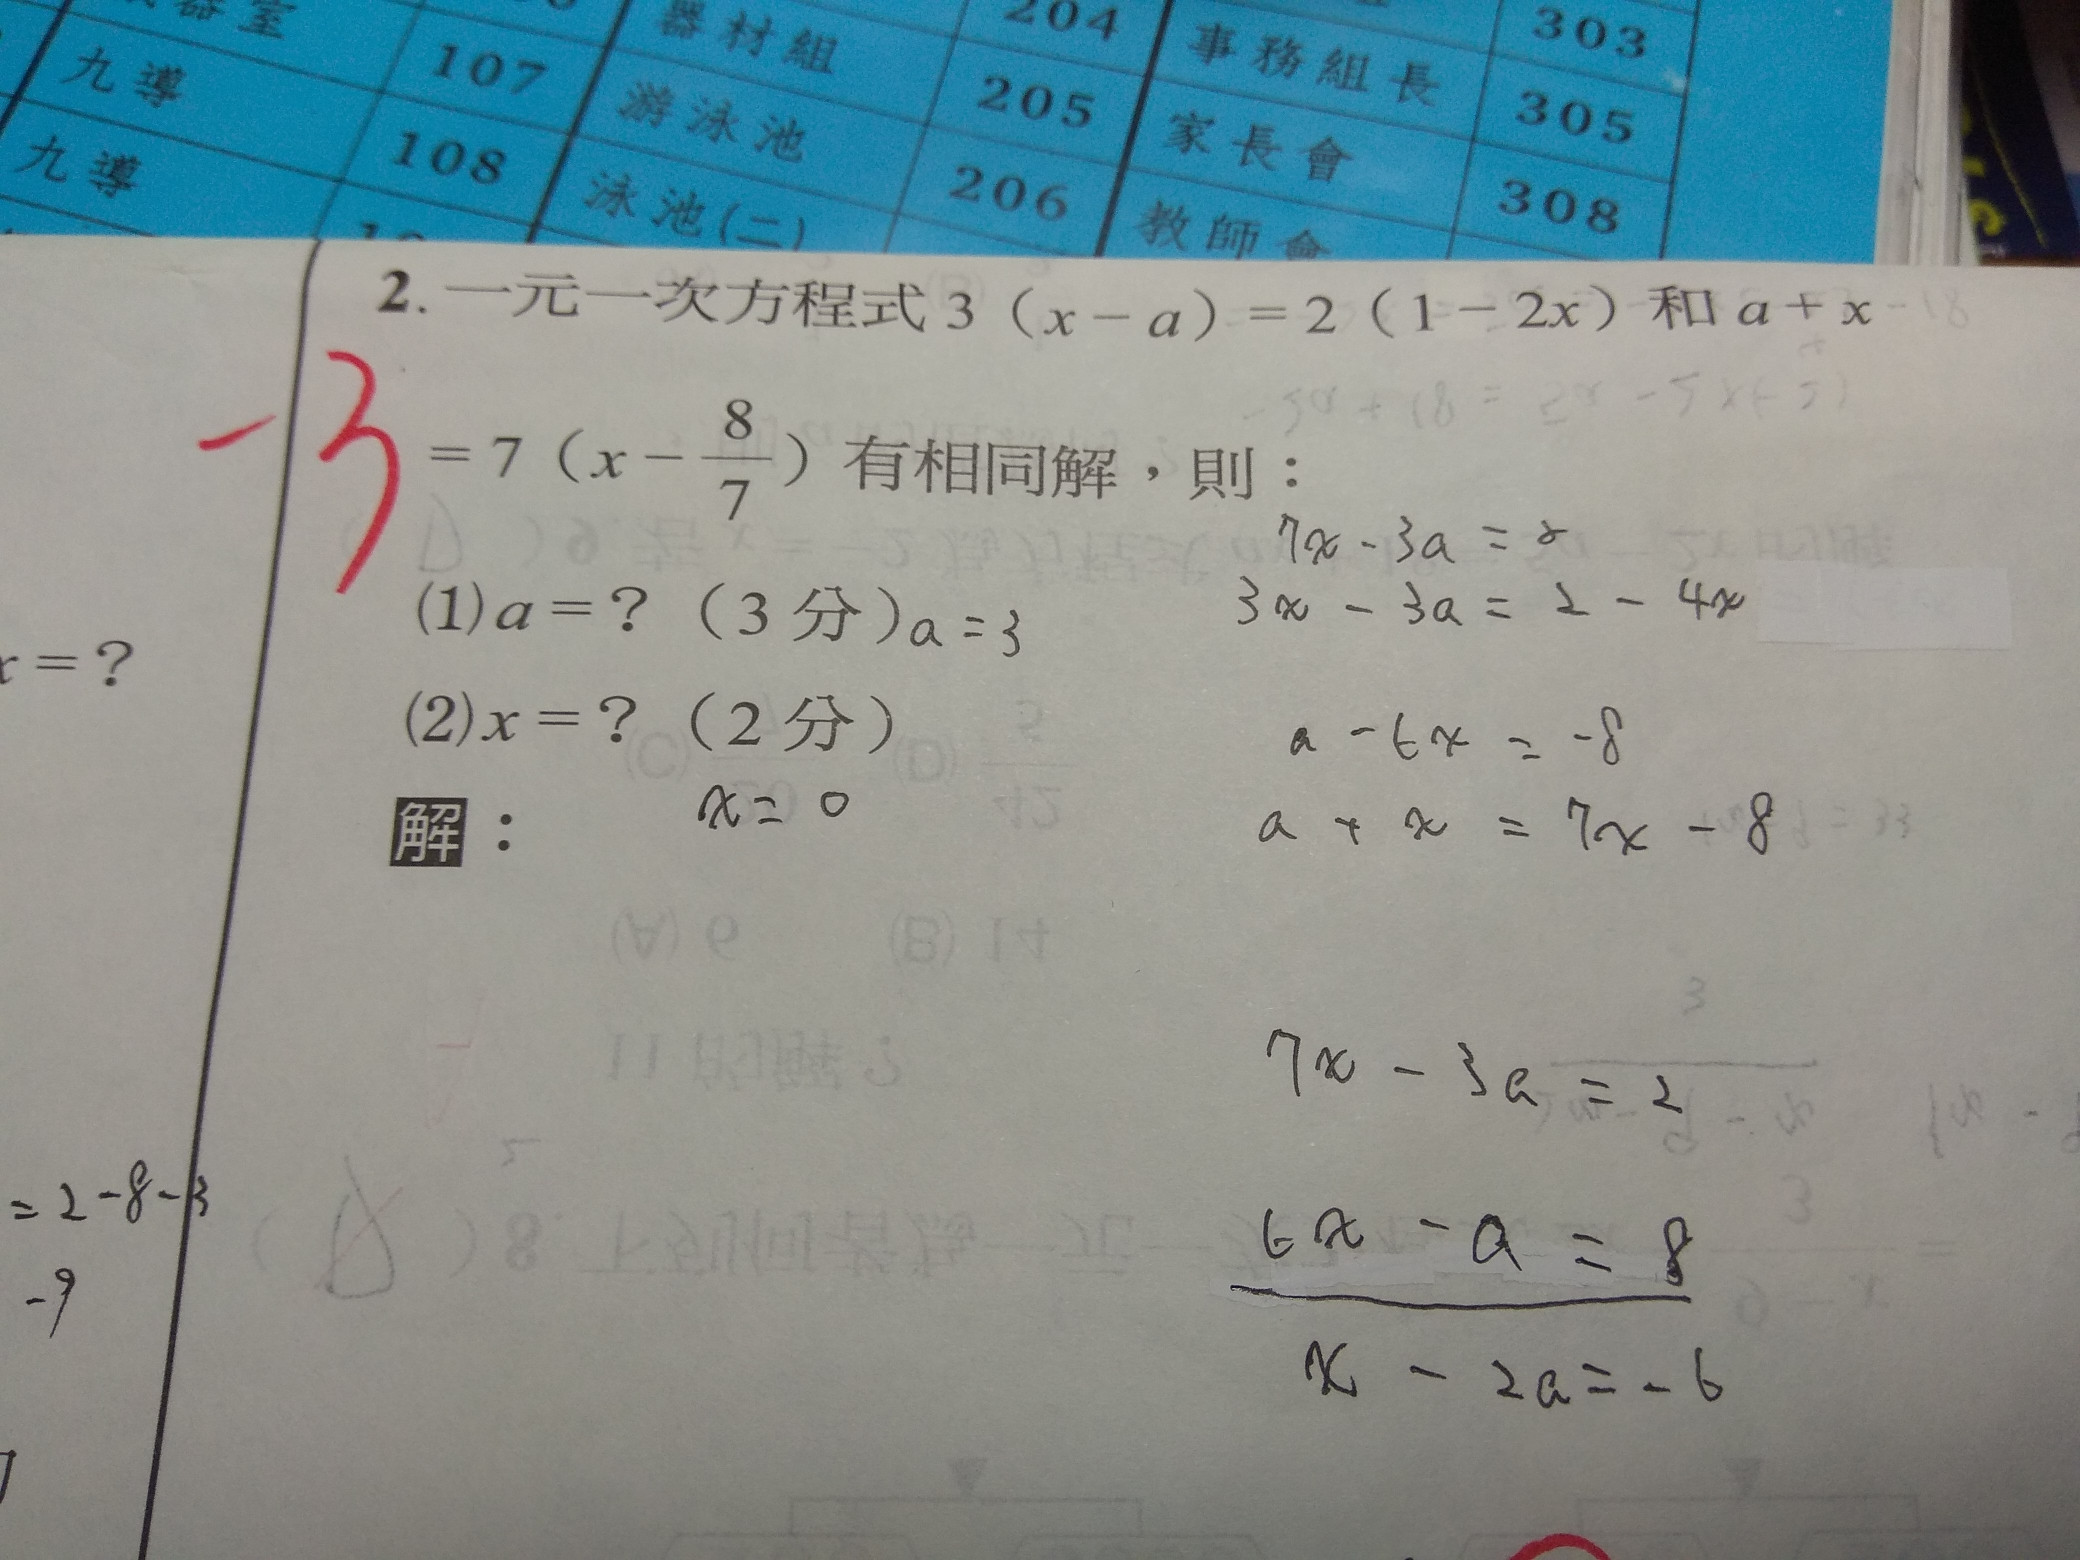 器室
204
303
九導
107
器材組
205
事務組長
305
九導
108
游泳池
206
家長會
308
泳池(二)
教師會
2. 一元一次方程式 3（x－a）＝2（1－2x）和 a＋x
＝7（x－8/7）有相同解，則：
-3
7x - 3a = 2
(1) a＝？（3 分） a = 3
3x - 3a = 2 - 4x
x＝？
(2) x＝？（2 分）
a - 6x = -8
x = 0
解：
a + x = 7x - 8
7x - 3a = 2
= 2 - 8 - 3
6x - a = 8
-9
x - 2a = -6